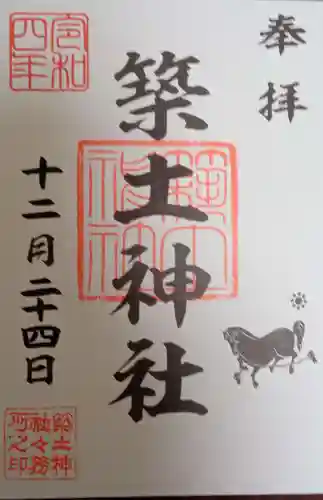 奉拝
築土神社
令和四年
十二月二十四日
築土神社
築土神社々務所之印